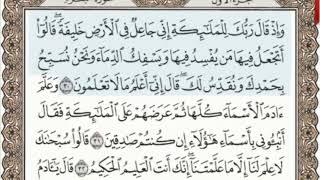 وَإِذْ قَالَ رَبُّكَ لِلْمَلَٰٓئِكَةِ إِنِّى جَاعِلٌ فِى ٱلْأَرْضِ خَلِيفَةً قَالُوٓا۟
أَتَجْعَلُ فِيهَا مَن يُفْسِدُ فِيهَا وَيَسْفِكُ ٱلدِّمَآءَ وَنَحْنُ نُسَبِّحُ
بِحَمْدِكَ وَنُقَدِّسُ لَكَ قَالَ إِنِّىٓ أَعْلَمُ مَا لَا تَعْلَمُونَ ٣٠ وَعَلَّمَ
ءَادَمَ ٱلْأَسْمَآءَ كُلَّهَا ثُمَّ عَرَضَهُمْ عَلَى ٱلْمَلَٰٓئِكَةِ فَقَالَ
أَنۢبِـُٔونِى بِأَسْمَآءِ هَٰٓؤُلَآءِ إِن كُنتُمْ صَٰدِقِينَ ٣١ قَالُوا۟ سُبْحَٰنَكَ
لَا عِلْمَ لَنَآ إِلَّا مَا عَلَّمْتَنَآ إِنَّكَ أَنتَ ٱلْعَلِيمُ ٱلْحَكِيمُ ٣٢ قَالَ يَٰٓـَٔادَمُ